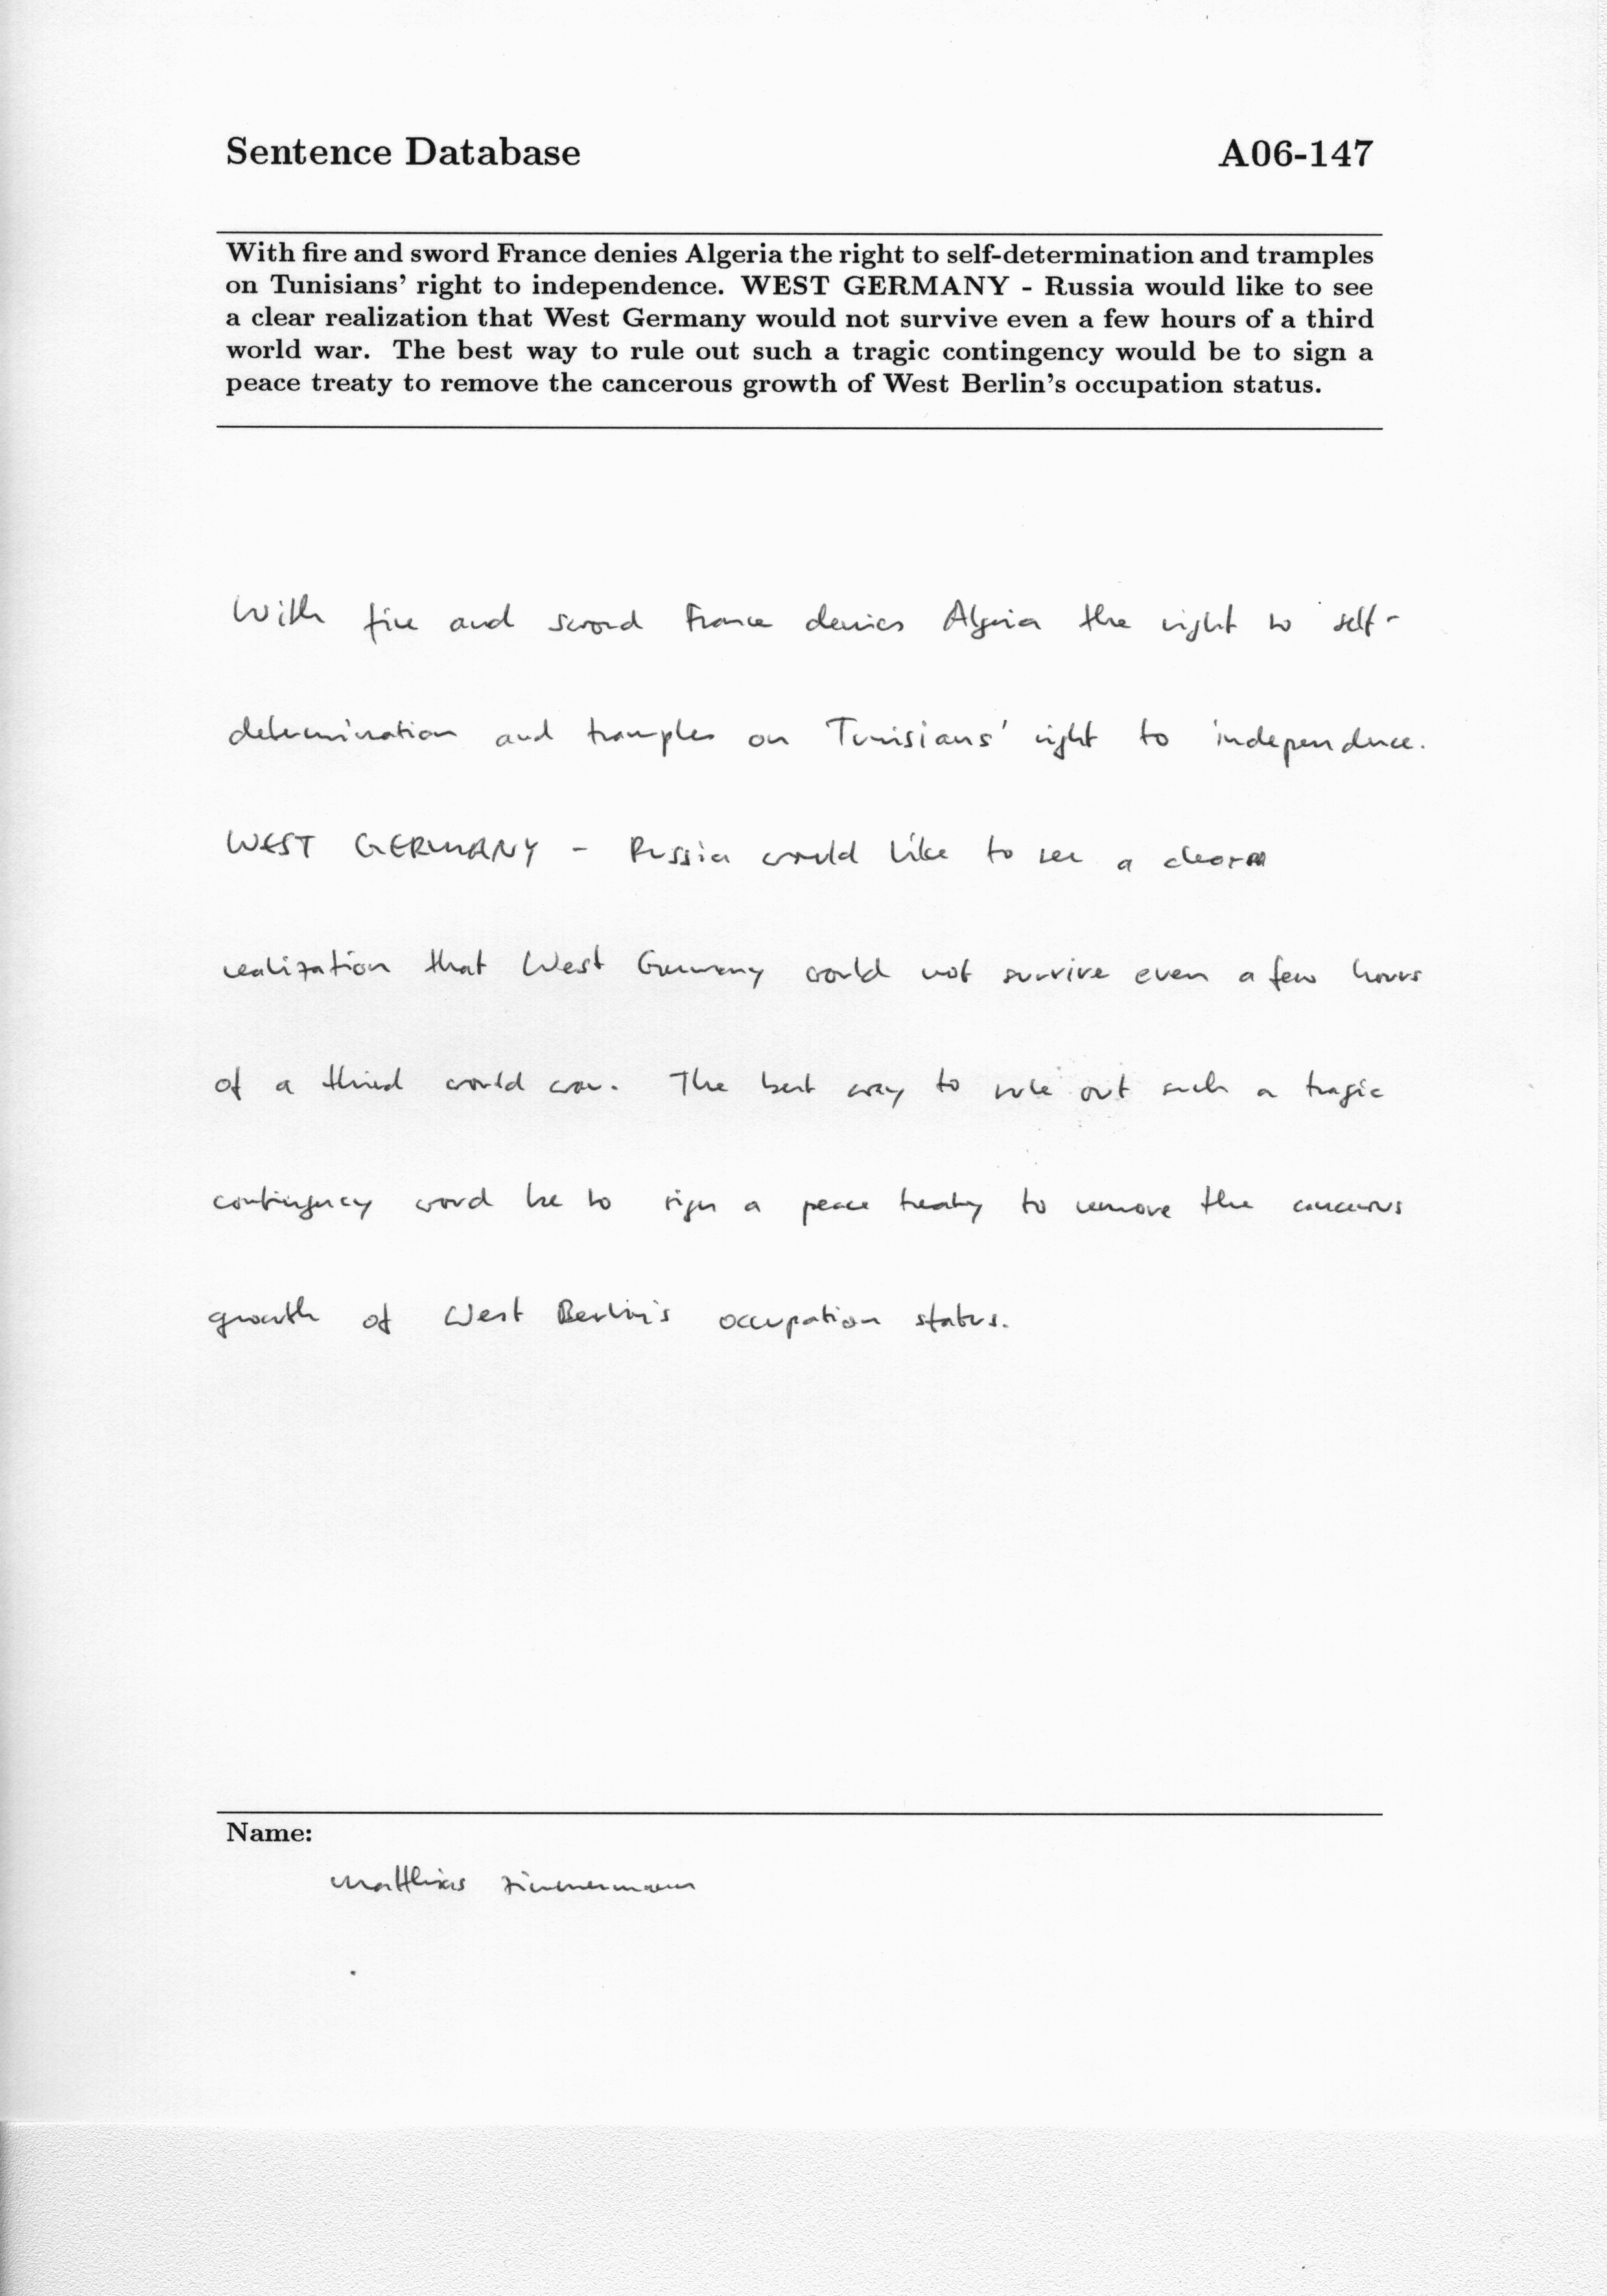 Sentence Database A06-147
With fire and sword France denies Algeria the right to self-determination and tramples
on Tunisians' right to independence. WEST GERMANY - Russia would like to see
a clear realization that West Germany would not survive even a few hours of a third
world war. The best way to rule out such a tragic contingency would be to sign a
peace treaty to remove the cancerous growth of West Berlin's occupation status.
With fire and sword France denies Algeria the right to self-
determination and tramples on Tunisians' right to independence.
WEST GERMANY - Russia would like to see a clear
realization that West Germany would not survive even a few hours
of a third world war. The best way to rule out such a tragic
contingency would be to sign a peace treaty to remove the cancerous
growth of West Berlin's occupation status.
Name:
Matthias Zimmermann